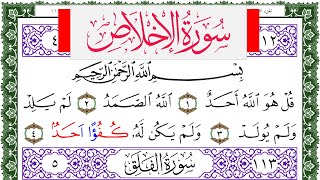 سورة الإخلاص
١١٢
٤
بِسْمِ اللَّهِ الرَّحْمَٰنِ الرَّحِيمِ
قُلْ هُوَ اللَّهُ أَحَدٌ ١ اللَّهُ الصَّمَدُ ٢ لَمْ يَلِدْ
وَلَمْ يُولَدْ ٣ وَلَمْ يَكُن لَّهُ كُفُوًا أَحَدٌ ٤
١١٣ سُورَةُ الفَلَقِ ٥